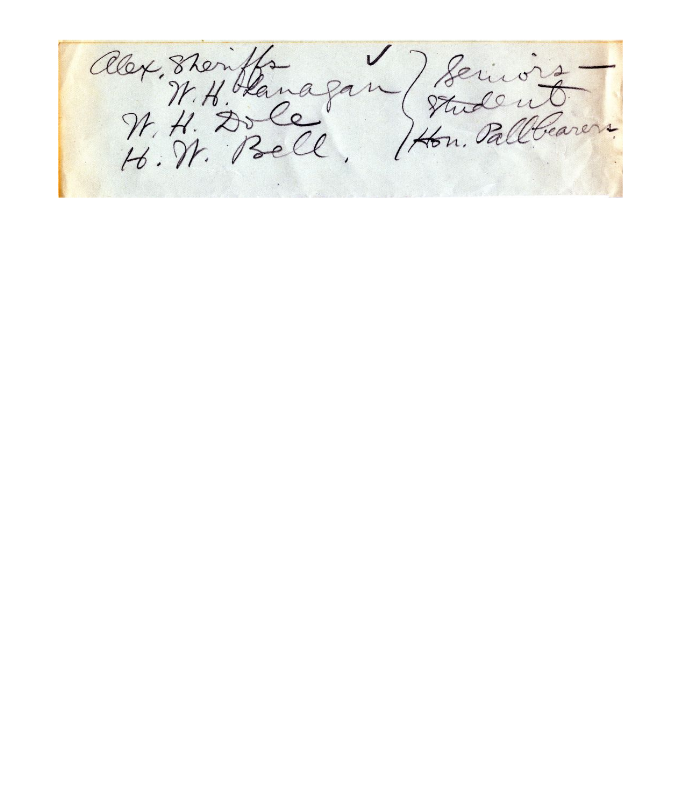 Alex. Sheriffs ✓
W. H. Flanagan
W. H. Dole
H. W. Bell.
Seniors —
Student
Hon. Pallbearers.